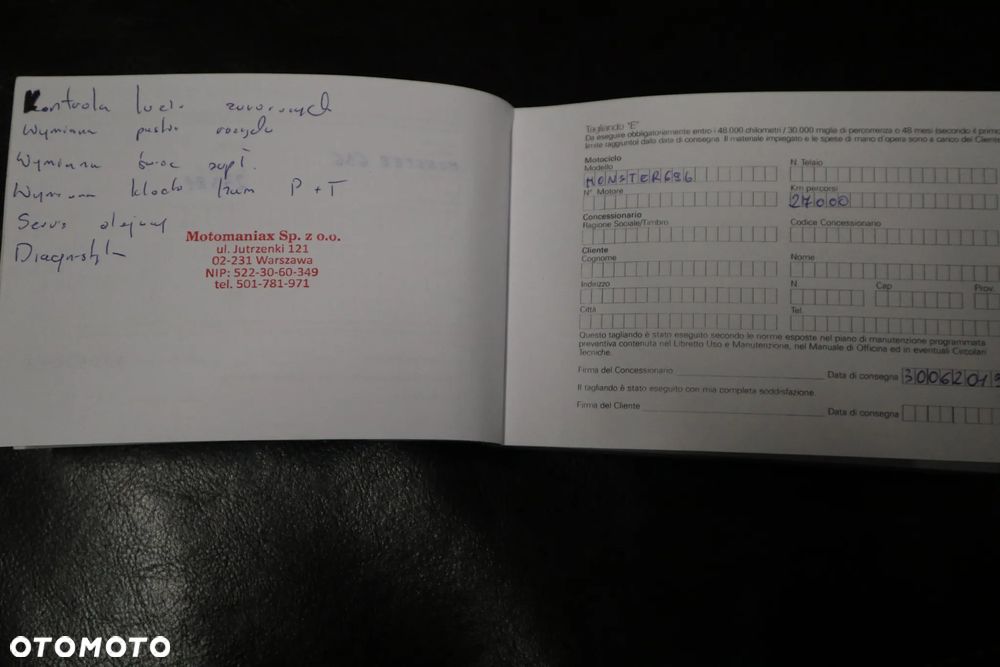 Kontrola luzu zaworowych
Wymiana paska
Wymiana świec zapł.
Wymiana klocki ham P + T
Serwis olejowy
Diagnostyka
Motomaniax Sp. z o.o.
ul. Jutrzenki 121
02-231 Warszawa
NIP: 522-30-60-349
tel. 501-781-971
Tagliando "E"
Da eseguire obbligatoriamente entro i 48.000 chilometri / 30.000 miglia di percorrenza o 48 mesi (secondo il prim
limite raggiunto) dalla data di consegna. Il materiale impiegato e le spese di mano d'opera sono a carico del Cliente
Motociclo
Modello
MONSTER696
N. Telaio
N° Motore
Km percorsi
27000
Concessionario
Ragione Sociale/Timbro
Codice Concessionario
Cliente
Cognome
Nome
Indirizzo
N.
Cap
Prov.
Città
Tel.
Questo tagliando è stato eseguito secondo le norme esposte nel piano di manutenzione programmata
preventiva contenuta nel Libretto Uso e Manutenzione, nel Manuale di Officina ed in eventuali Circolari
Tecniche.
Firma del Concessionario
Data di consegna
3006201
Il tagliando è stato eseguito con mia completa soddisfazione.
Firma del Cliente
Data di consegna
OTOMOTO